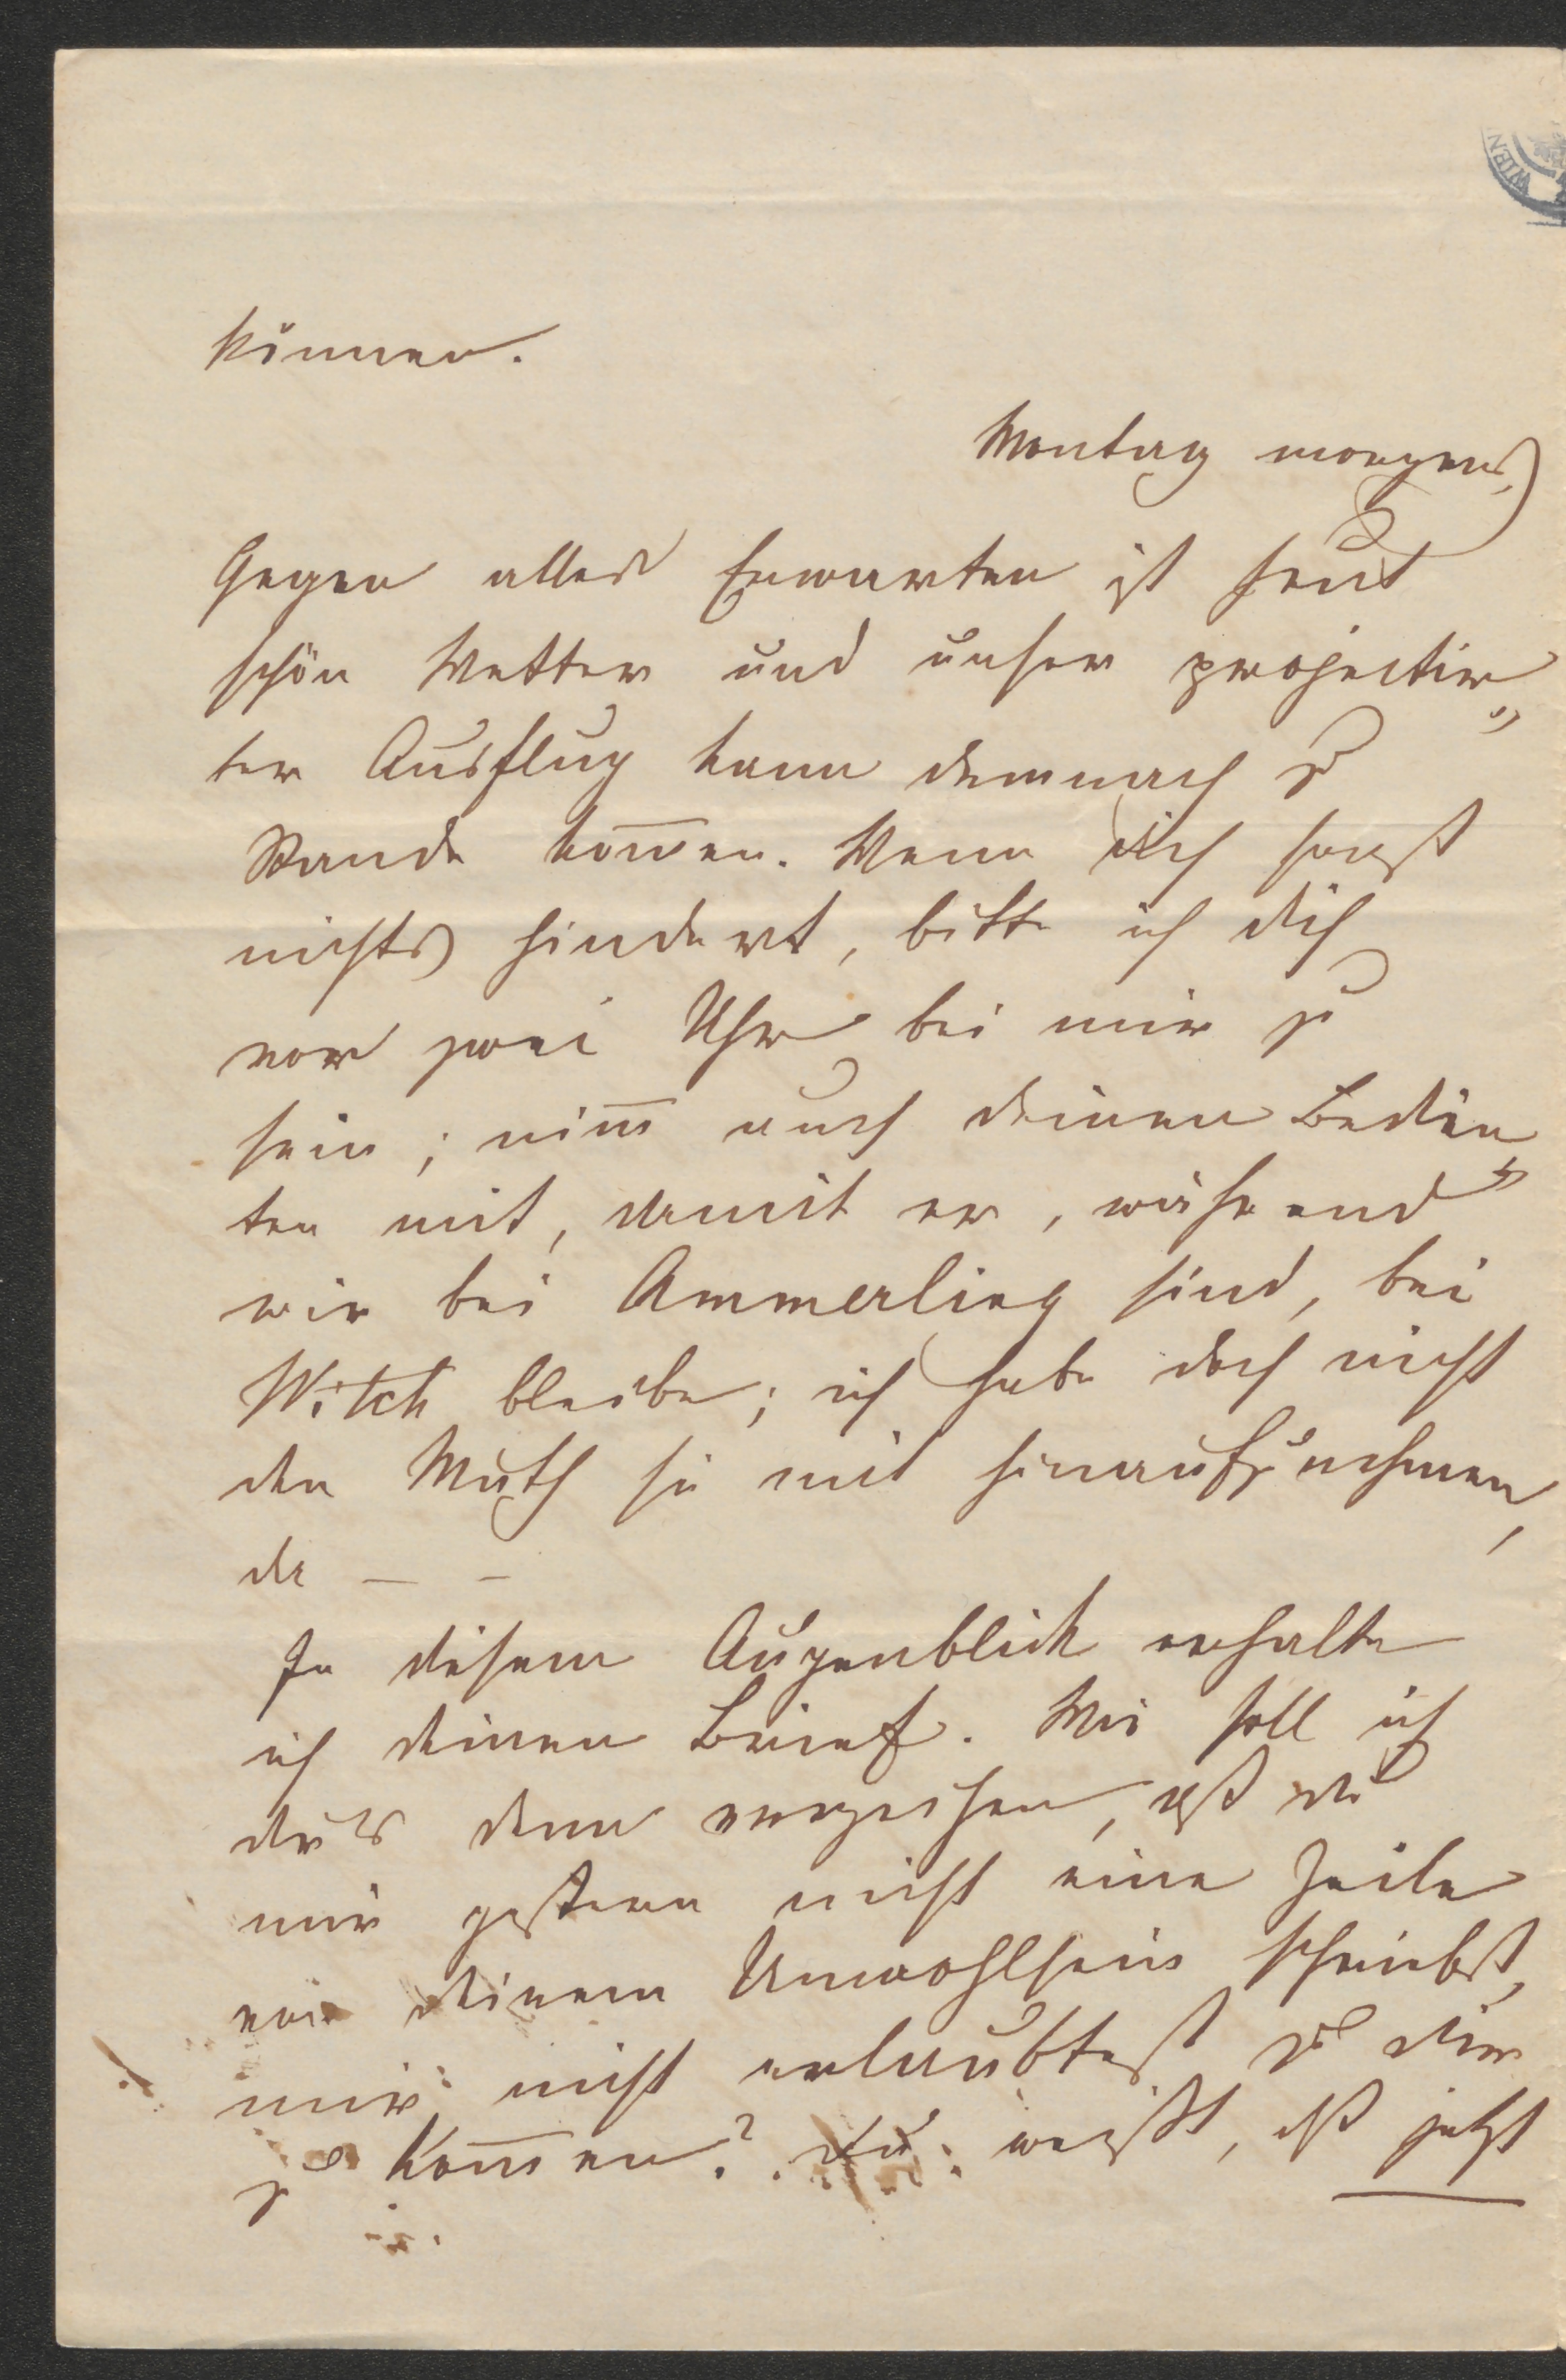 WIEN
können.
Montag morgens,
Gegen alles Erwarten ist heut
schön Wetter und unser projectir„
ter Ausflug kann demnach zu
Stande kom̅en. Wenn dich sonst
nichts hindert, bitte ich dich
vor zwei Uhr bei mir zu
sein; nim̅ auch deinen Bedien„
ten mit, damit er, während
wir bei Ammerling sind, bei
Witch bleibe; ich habe doch nicht
den Muth sie mit hinaufzunehmen,
da — —
In diesem Augenblick erhalte
ich deinen Brief. Wie soll ich
das denn verzeihen, daß du
mir gestern nicht eine Zeile
von deinem Unwohlsein schriebst,
mir nicht erlaubtest zu dir
zu kom̅en? du weißt, daß jetzt